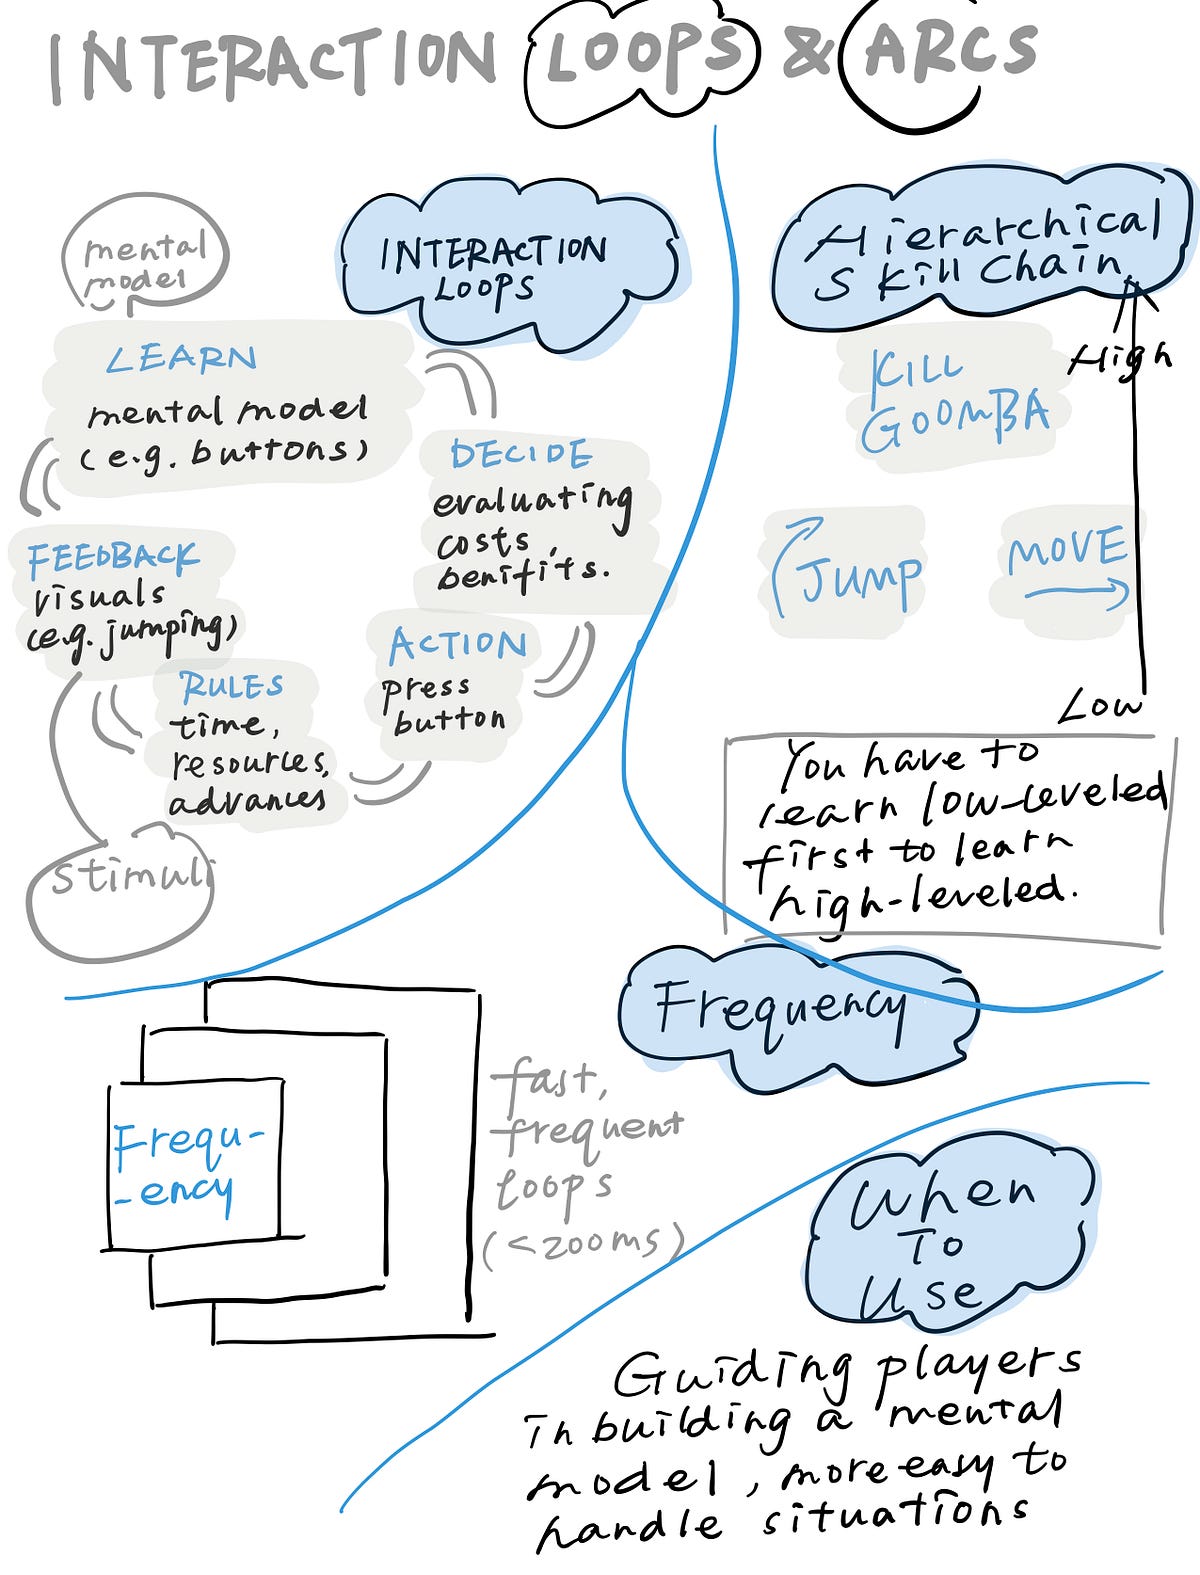 INTERACTION LOOPS & ARCS
INTERACTION
LOOPS
mental
model
LEARN
mental model
(e.g. buttons)
DECIDE
evaluating
costs,
benifits.
ACTION
press
button
RULES
time,
resources,
advances
FEEDBACK
visuals
(e.g. jumping)
stimuli
Hierarchical
Skill Chain
High
KILL
GOOMBA
JUMP
MOVE
Low
You have to
learn low-leveled
first to learn
high-leveled.
Frequency
Frequ-
-ency
fast,
frequent
loops
(<200ms)
When
To
Use
Guiding players
in building a mental
model, more easy to
handle situations